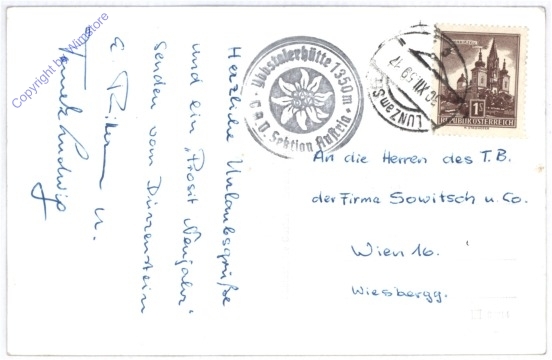 Herzliche Urlaubsgrüße
und ein „Prosit Neujahr"
senden vom Dürrenstein
E. Ritter u.
Ludwig
Ybbstalerhütte 1350m
Ö.A.V. Sektion Austria
LUNZ am See
30. XII 59 - 17
1S
REPUBLIK ÖSTERREICH
An die Herren des T.B.
der Firma Sowitsch u. Co.
Wien 16.
Wiesbergg.
Copyright by Wienstore